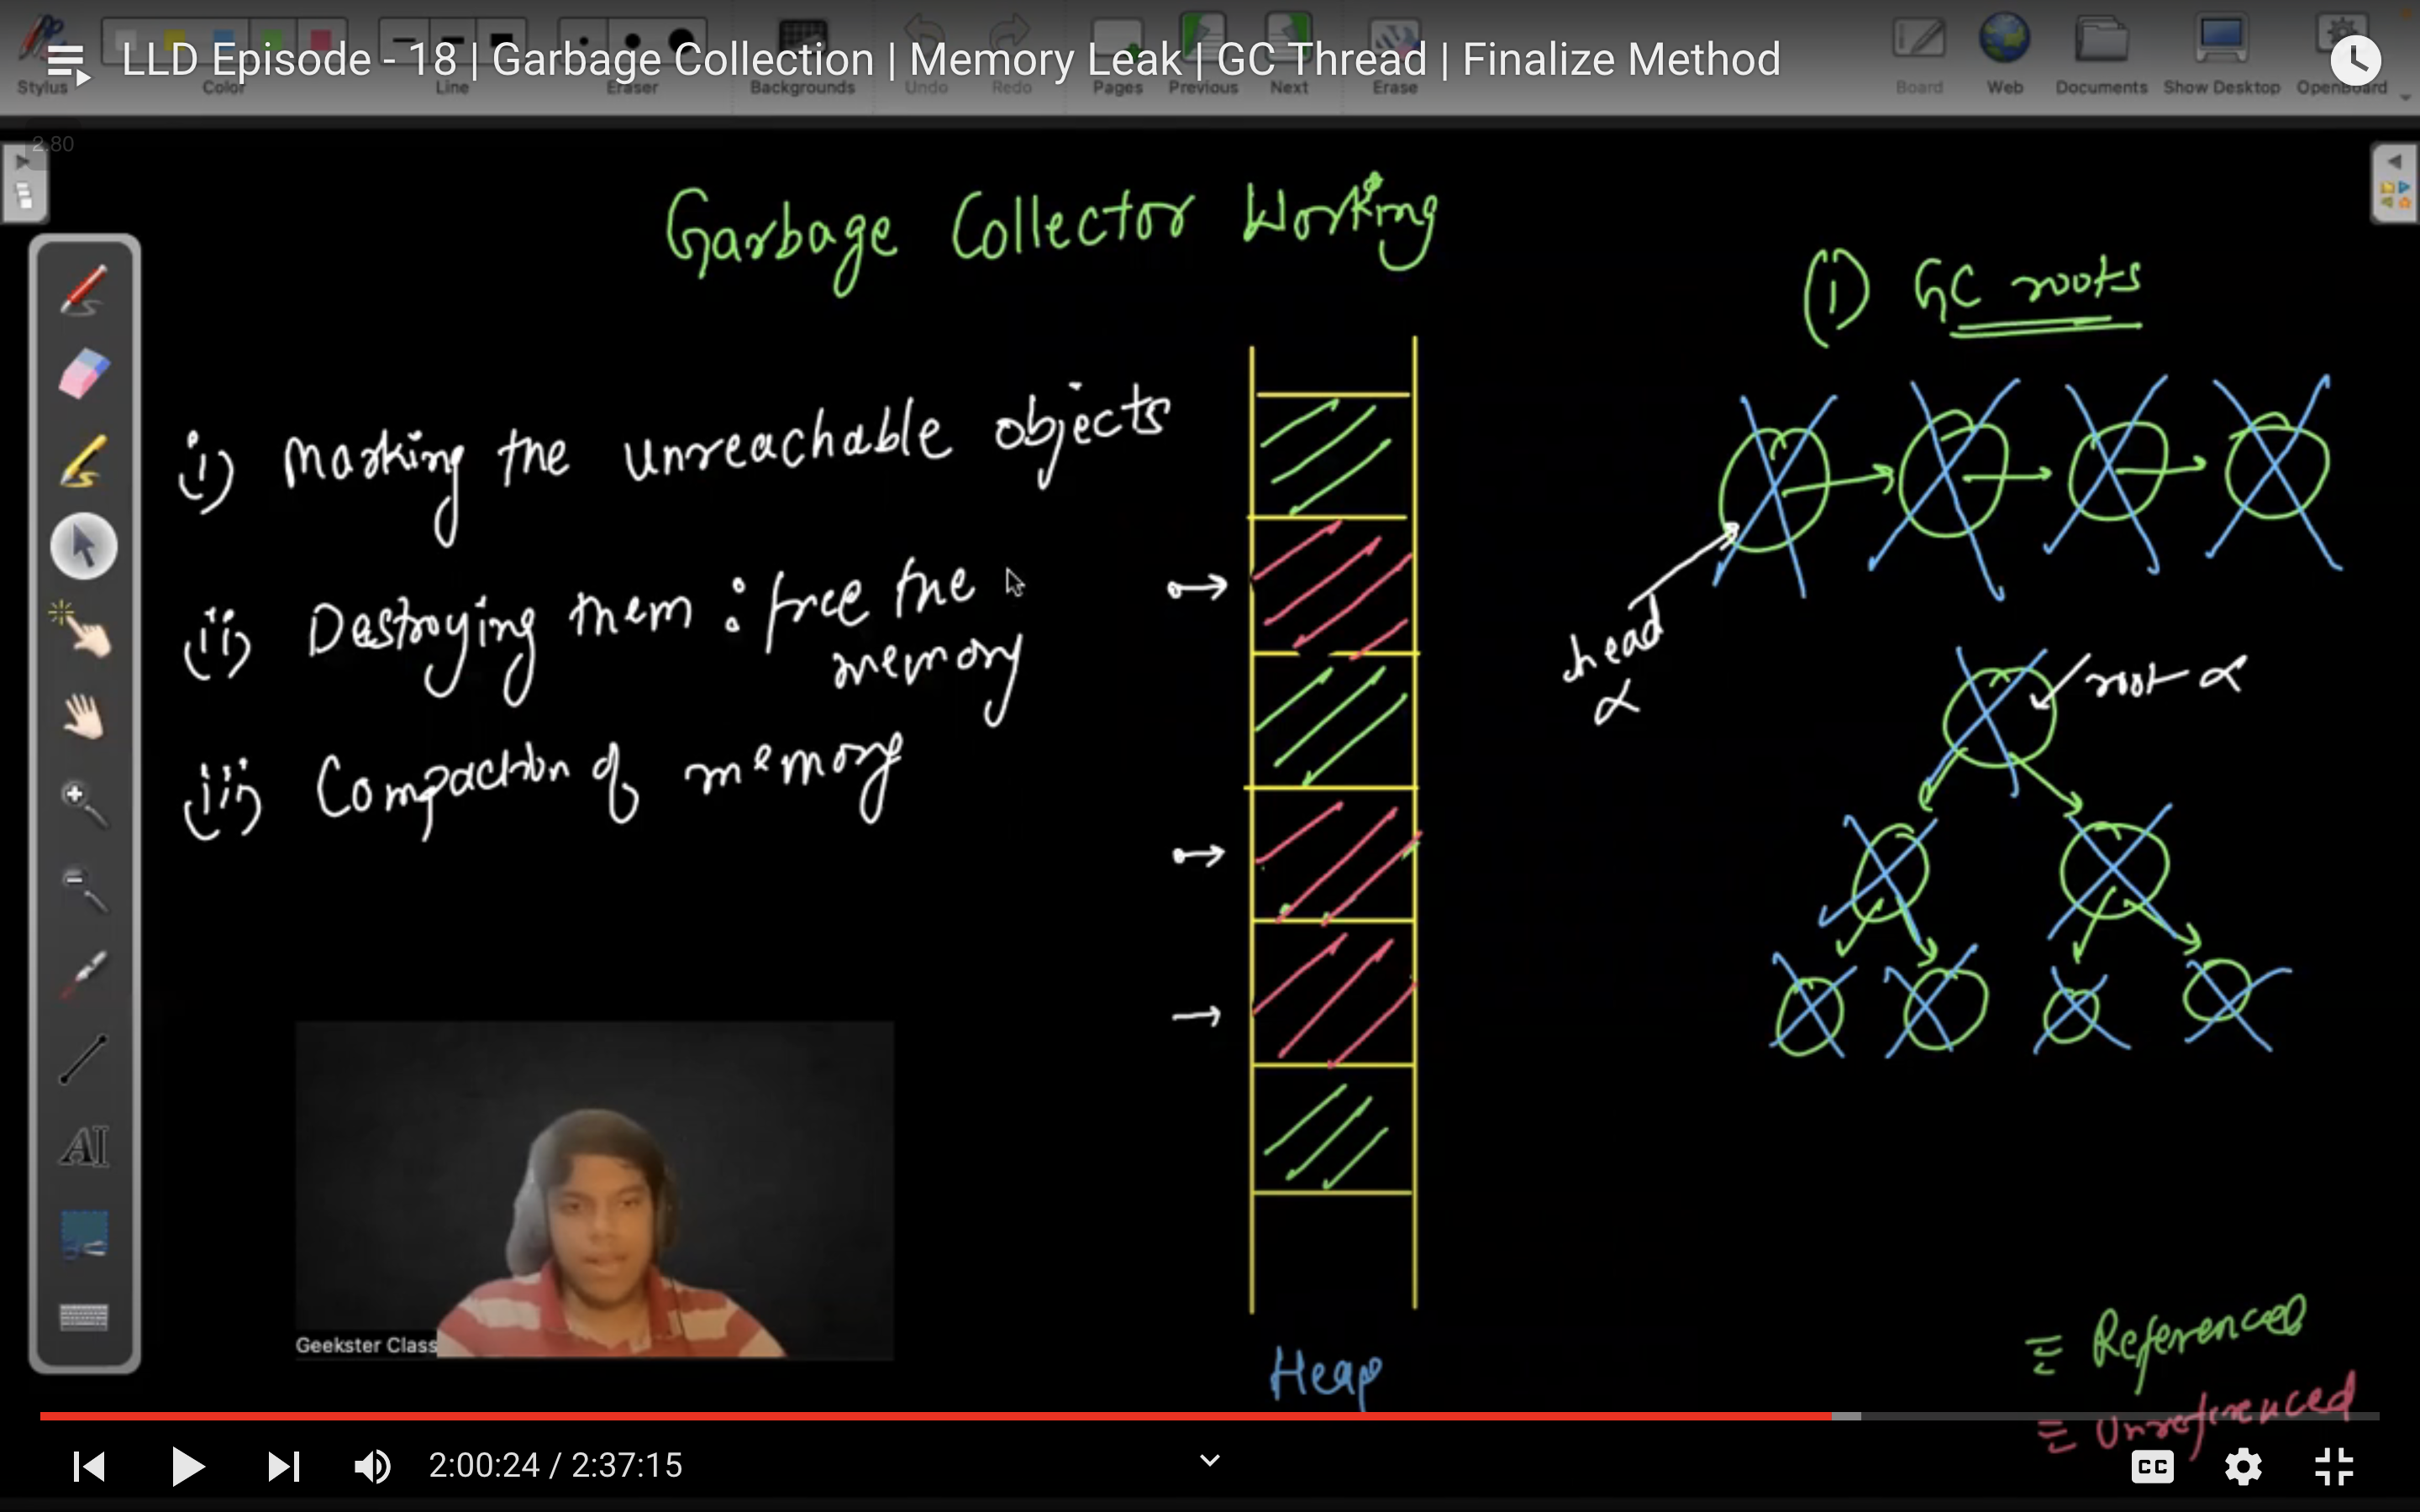 LLD Episode - 18 | Garbage Collection | Memory Leak | GC Thread | Finalize Method
Stylus Color Line Eraser Backgrounds Undo Redo Pages Previous Next Erase Board Web Documents Show Desktop OpenBoard
2.80
Garbage Collector Working
(1) GC roots
(i) Marking the unreachable objects
(ii) Destroying them : free the
memory
(iii) Compaction of memory
head
root
AI
Geekster Class
Heap
= Referenced
= Unreferenced
2:00:24 / 2:37:15
CC